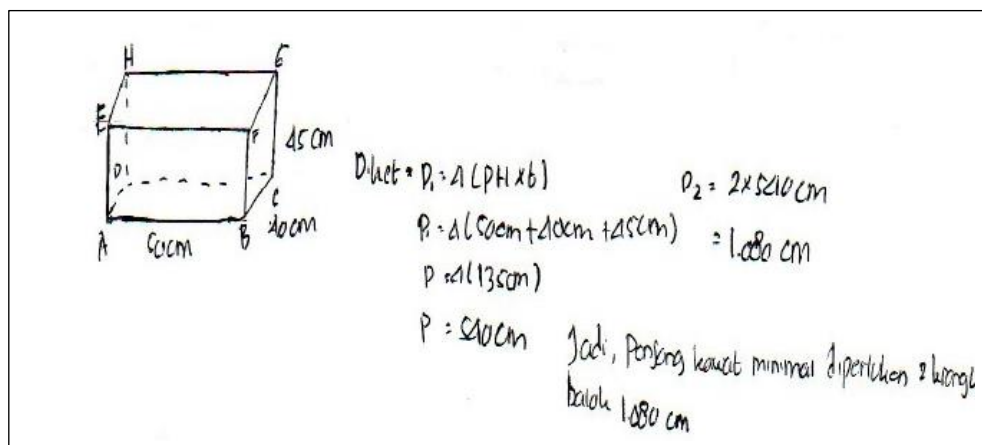 H G
E F
45 cm
D C
40cm
A 50cm B
Diket = P1 = 4 (p+l+t)
P1 = 4 (50cm + 40cm + 45cm)
P = 4 (135cm)
P = 540 cm
P2 = 2 x 540 cm
= 1.080 cm
Jadi, Panjang kawat minimal diperlukan 2 krangk
balok 1.080 cm